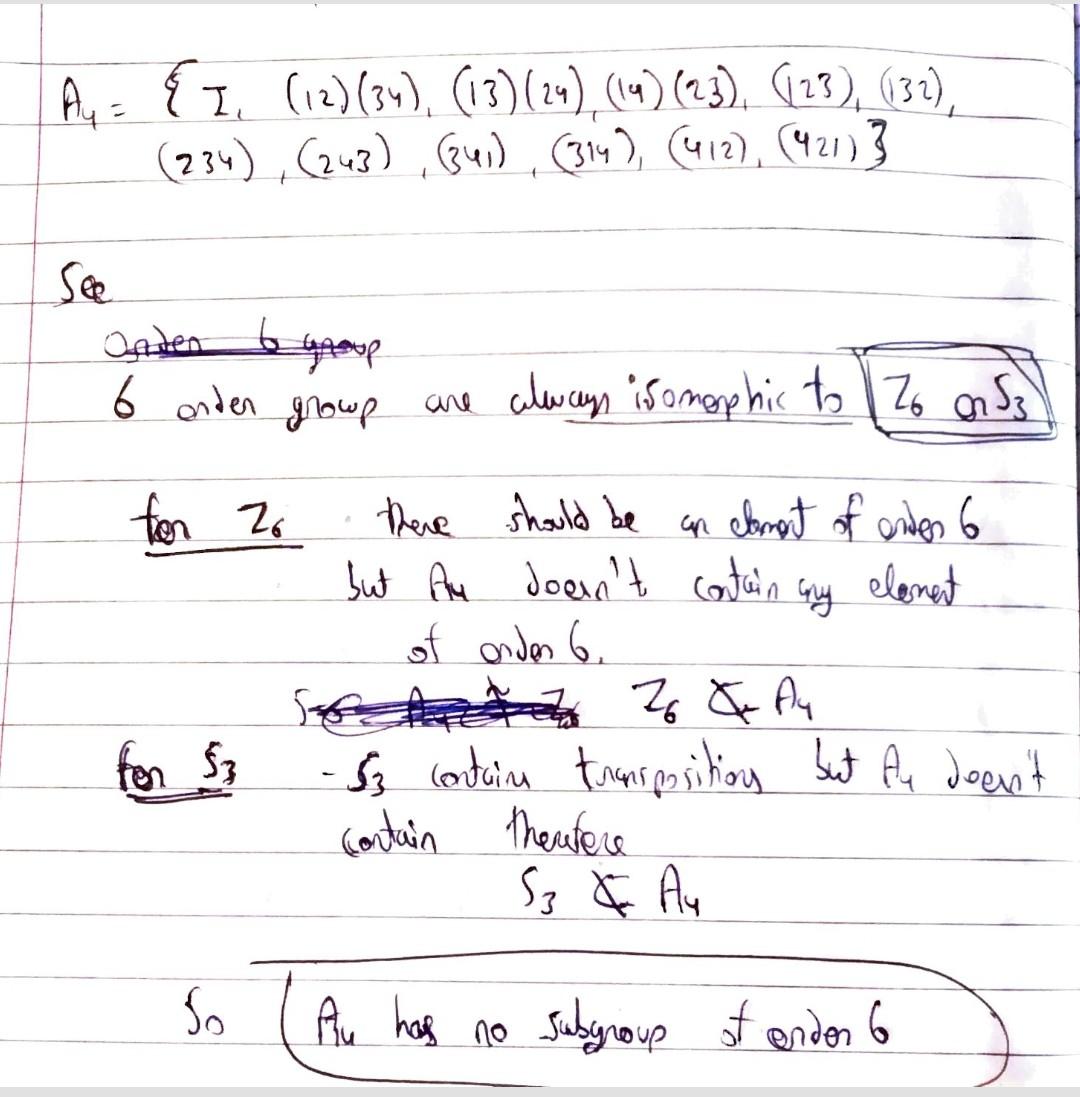 A4 = { I, (12)(34), (13)(24), (14)(23), (123), (132),
(234), (243), (341), (314), (412), (421) }
See
Order 6 group
6 order group are always isomorphic to Z6 or S3
for Z6 There should be an element of order 6
but A4 doesn't contain any element
of order 6.
Z6 ≮ A4
for S3 - S3 contains transpositions but A4 doesn't
contain Therefore
S3 ≮ A4
So A4 has no subgroup of order 6